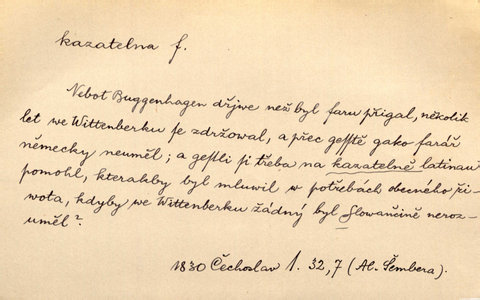 kazatelna f.
Nebot Buggenhagen dřjwe než byl faru přigal, několik
let we Wittenberku se zdržowal, a přec gesstě gako farář
německy neuměl; a gestli si třeba na kazatelně latinau
pomohl, kterakby byl mluwil w potřebách obecného ži-
wota, kdyby we Wittenberku žádný byl Slowančině neroz-
uměl?
1830 Čechoslav 1. 32,7 (Al. Šembera).